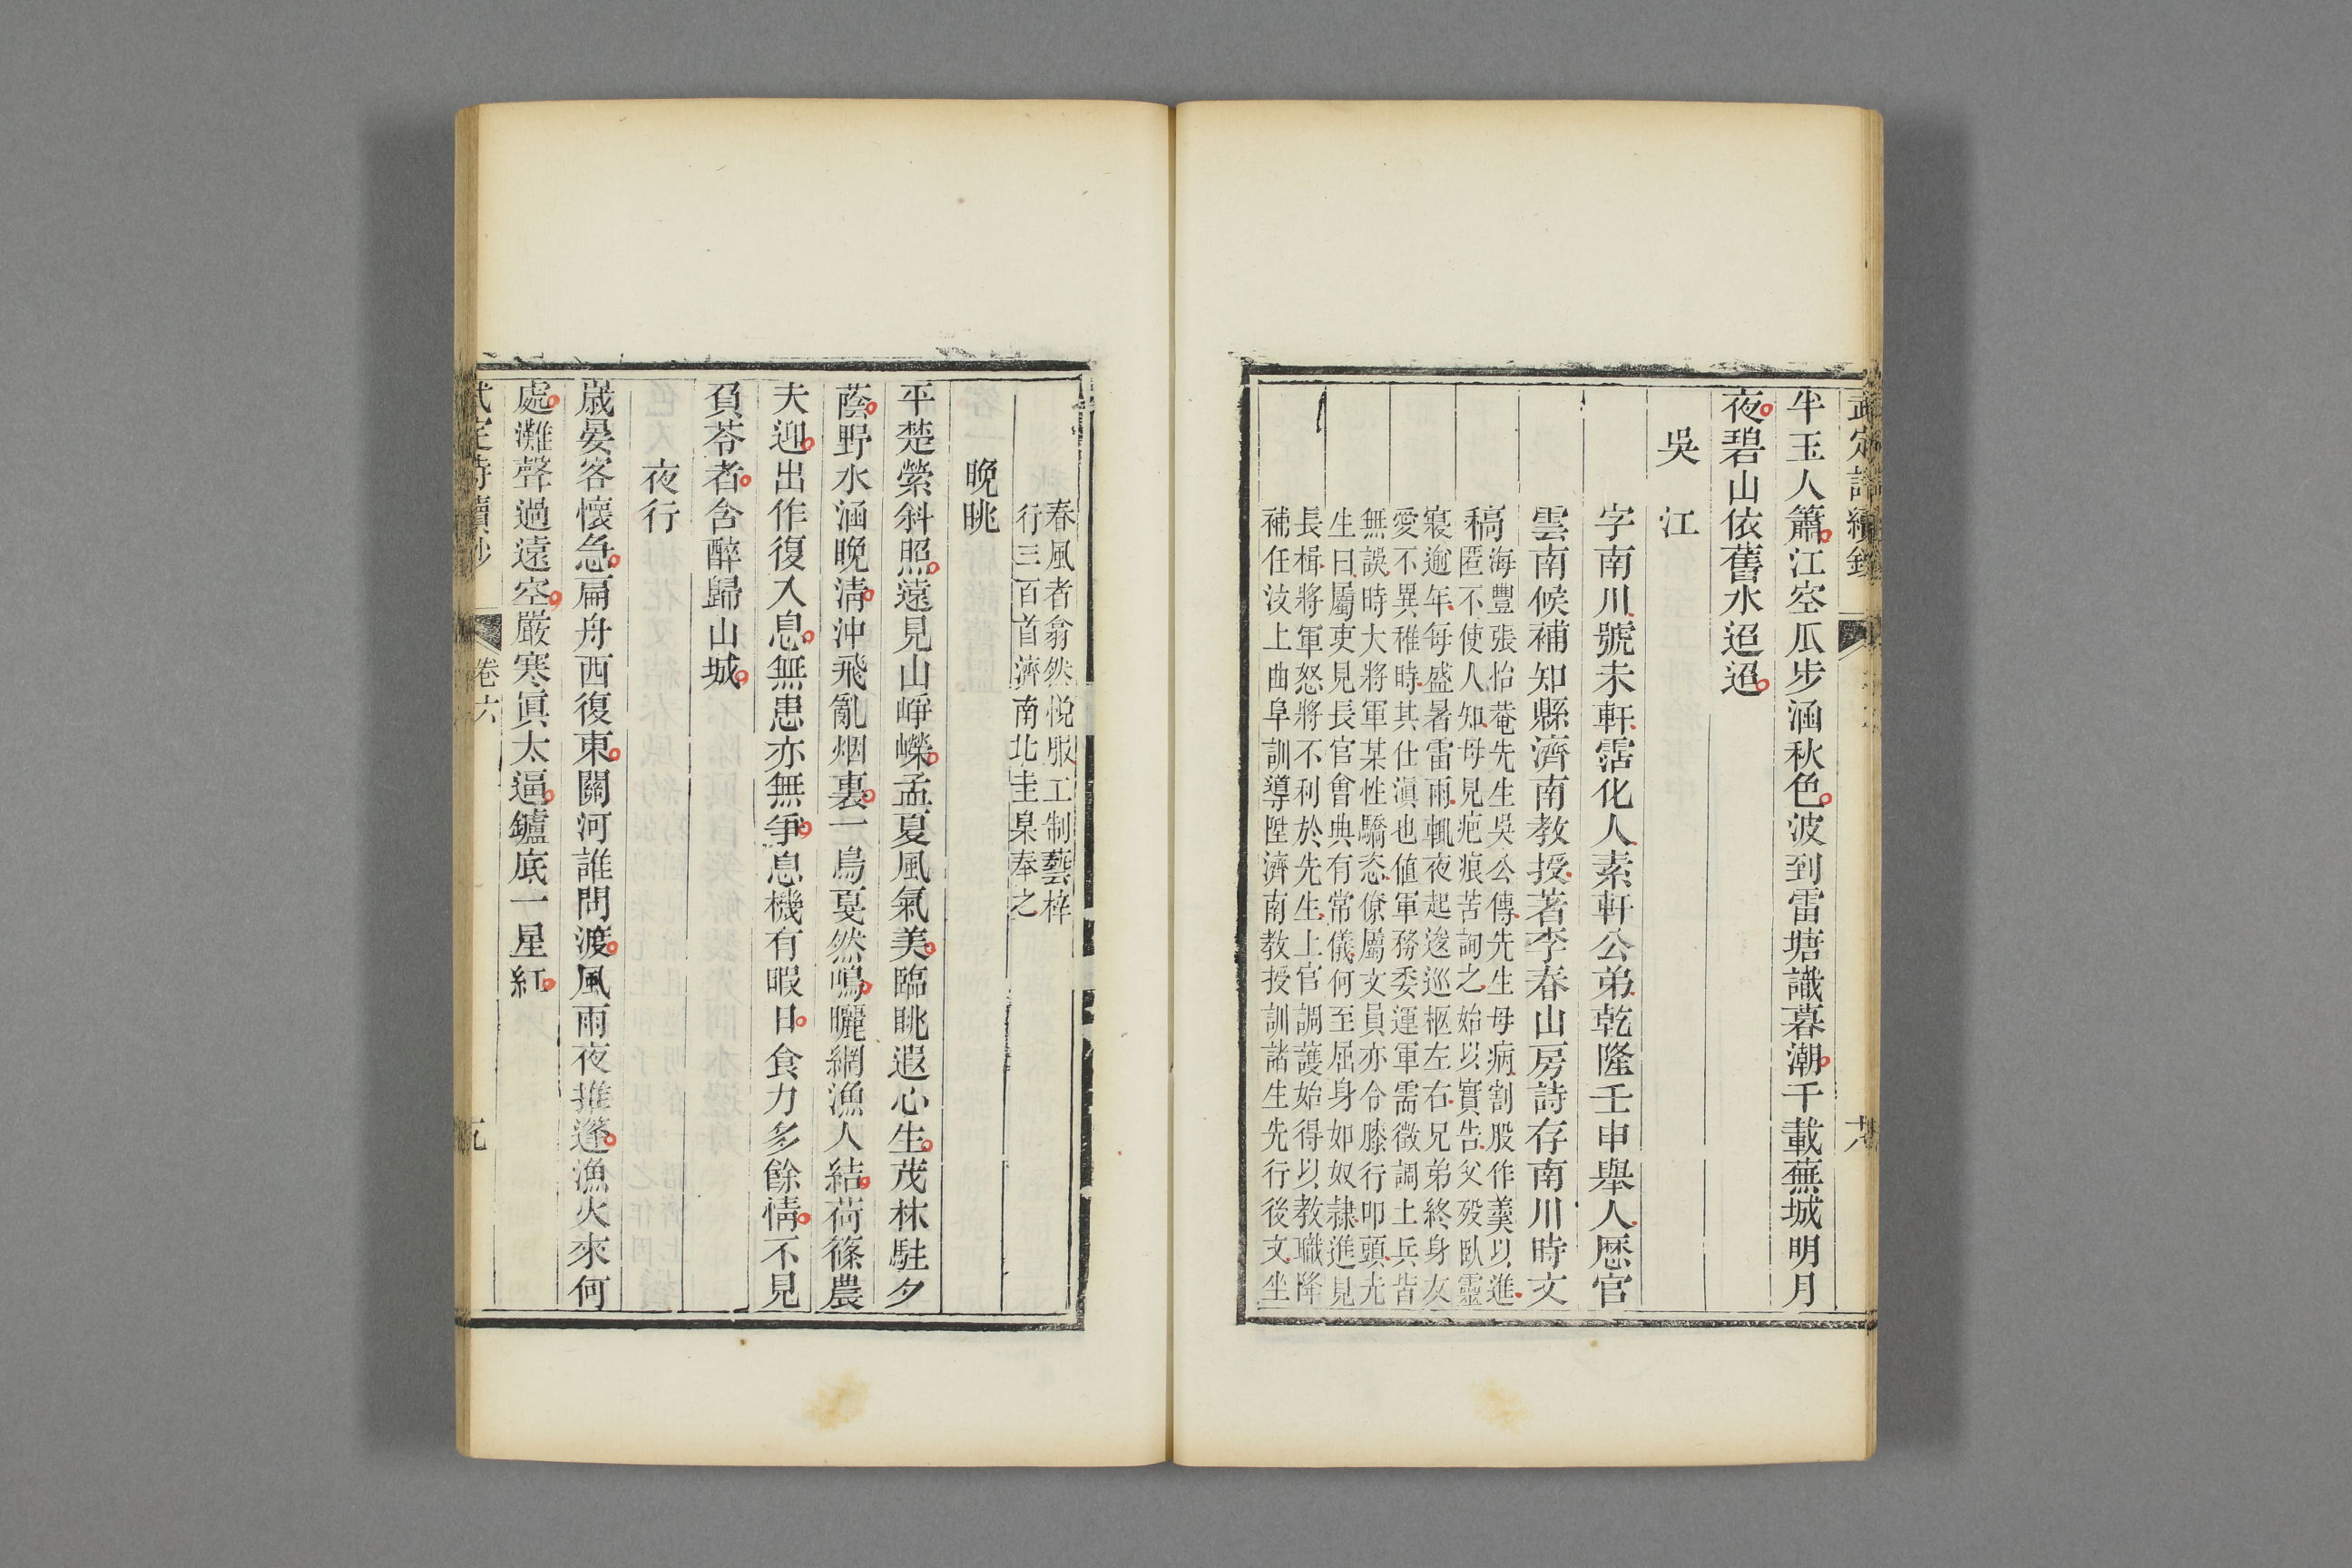 武定詩續鈔
半玉人簫江空瓜步涵秋色波到雷塘識暮潮千載蕪城明月
夜碧山依舊水迢迢
吳江
字南川號未軒霑化人素軒公弟乾隆壬申舉人歷官
雲南候補知縣濟南教授著李春山房詩存南川時文
稿
海豐張怡菴先生吳公傳先生母病割股作羹以進
匿不使人知母見疤痕苦詢之始以實告父歿臥靈
寢逾年每盛暑雷雨輒夜起逡巡柩左右兄弟終身友
愛不異稚時其仕滇也値軍務委運軍需徵調土兵皆
無誤時大將軍某性驕恣僚屬文員亦令膝行叩頭先
生曰屬吏見長官會典有常儀何至屈身如奴隷進見
長楫將軍怒將不利於先生上官調護始得以教職降
補任汶上曲阜訓導陞濟南教授訓諸生先行後文坐
春風者翕然悦服工制藝梓
行三百首濟南北圭臬奉之
晚眺
平楚縈斜照遠見山崢嶸孟夏風氣美臨眺遐心生茂林駐夕
蔭野水涵晚淸沖飛亂烟裏一鳥戛然鳴曬網漁人結荷篠農
夫迎出作復入息無患亦無爭息機有暇日食力多餘情不見
負苓者含醉歸山城
夜行
歲晏客懷急扁舟西復東關河誰問渡風雨夜推篷漁火來何
處灘聲過遠空嚴寒眞太逼鑪底一星紅
武定詩續鈔
卷六